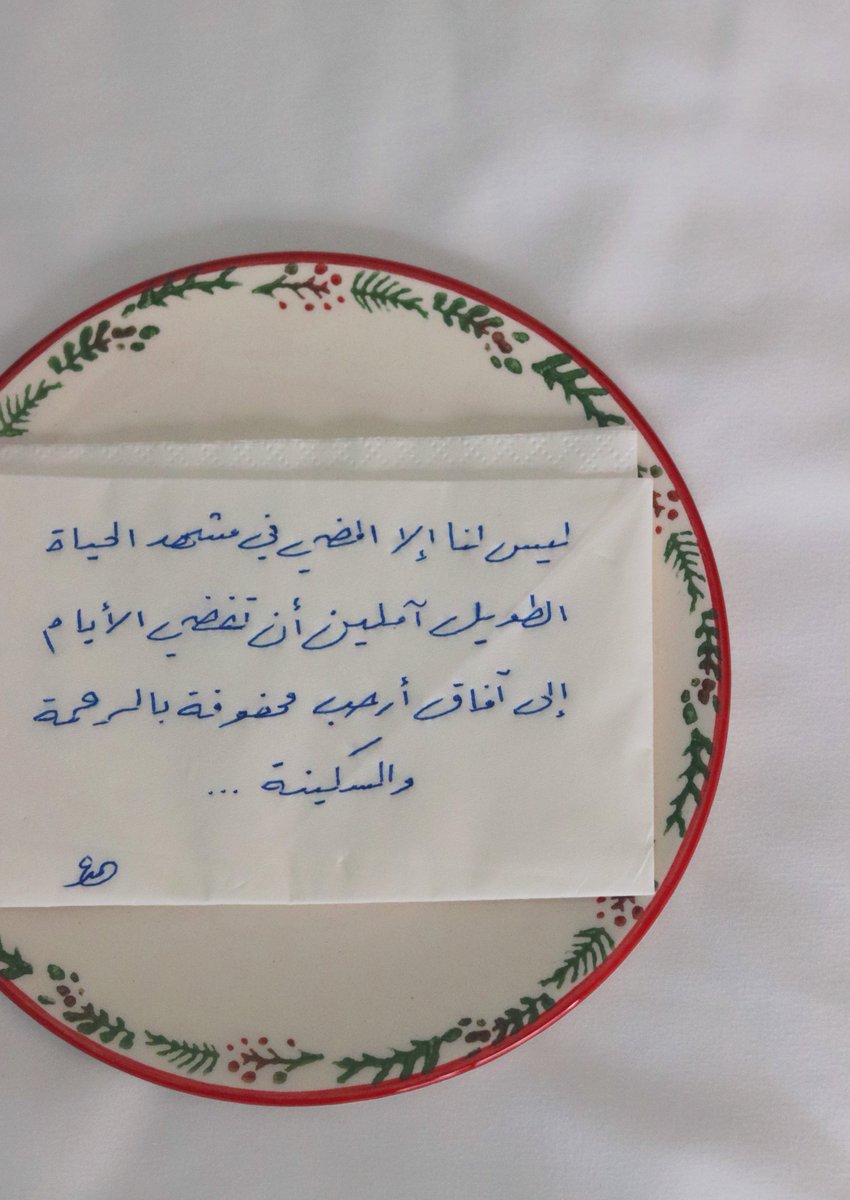 ليس لنا إلا المضي في مشهد الحياة
الطويل آملين أن تفضي الأيام
إلى آفاق أرحب محفوفة بالرحمة
والسكينة ...